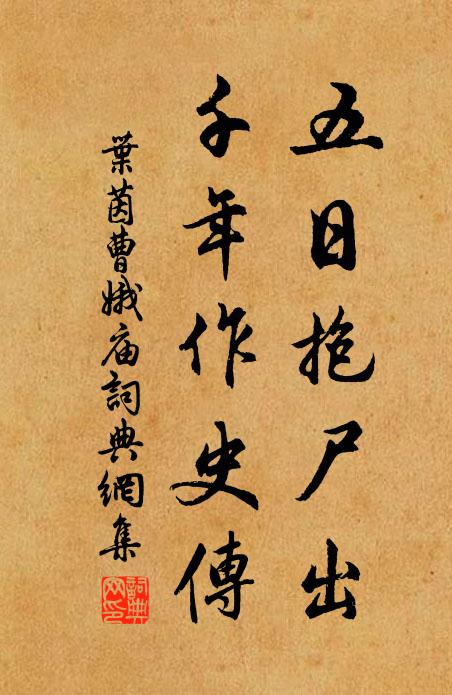 五日抱尸出
千年作史傳
葉茵曹娥庙詞典網集
詞典网印